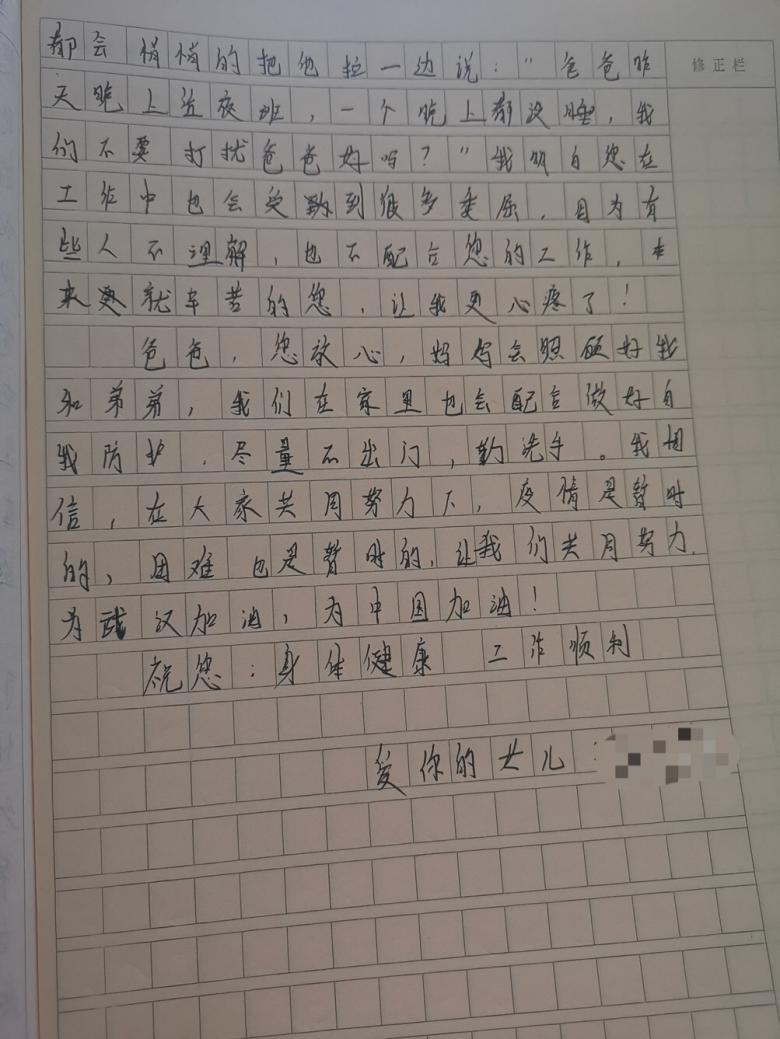 都会悄悄的把他拉一边说："爸爸昨
修正栏
天晚上值夜班，一个晚上都没睡，我
们不要打扰爸爸好吗？"我明白您在
工作中也会受到很多委屈，因为有
些人不理解，也不配合您的工作，本
来就辛苦的您，让我更心疼了！
爸爸，您放心，妈妈会照顾好我
和弟弟，我们在家里也会配合做好自
我防护，尽量不出门，勤洗手。我相
信，在大家共同努力下，疫情是暂时
的，困难也是暂时的，让我们共同努力，
为武汉加油，为中国加油！
祝您：身体健康 工作顺利
爱你的女儿：